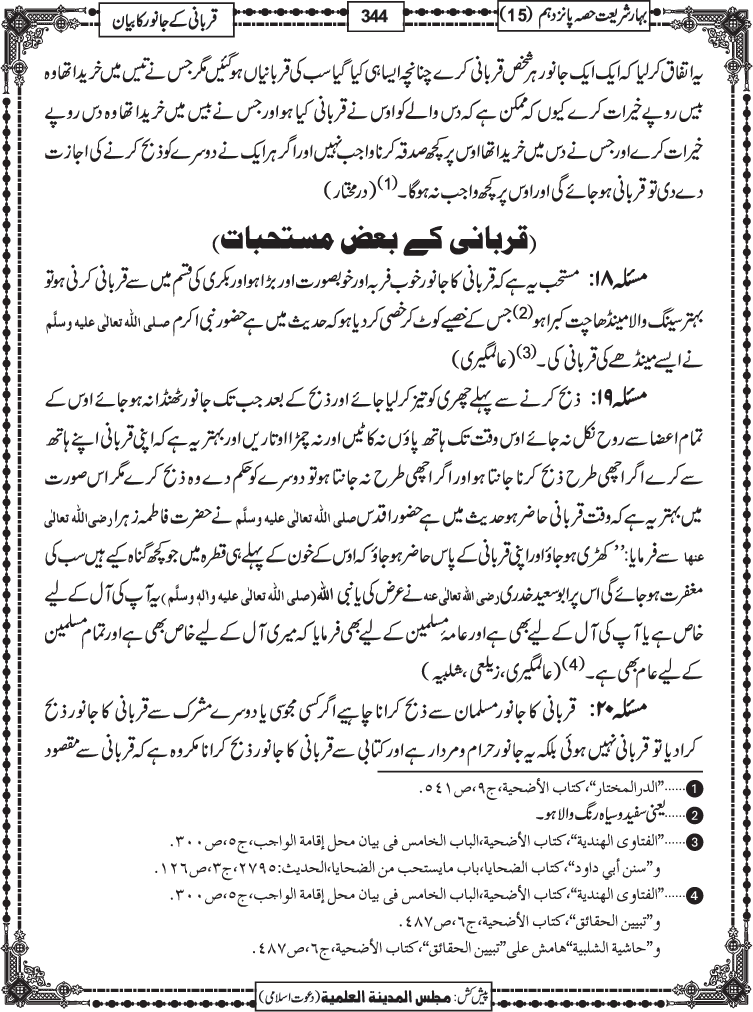 بہارِشریعت حصہ پانزدہم (15)
344
قربانی کے جانور کا بیان
یہ اتفاق کرلیا کہ ایک ایک جانور ہر شخص قربانی کرے چنانچہ ایسا ہی کیا گیا سب کی قربانیاں ہوگئیں مگر جس نے تیس میں خریدا تھا وہ
بیس روپے خیرات کرے کیوں کہ ممکن ہے کہ دس والے کو اوس نے قربانی کیا ہو اور جس نے بیس میں خریدا تھا وہ دس روپے
خیرات کرے اور جس نے دس میں خریدا تھا اوس پر کچھ صدقہ کرنا واجب نہیں اور اگر ہر ایک نے دوسرے کو ذبح کرنے کی اجازت
دے دی تو قربانی ہو جائے گی اور اوس پر کچھ واجب نہ ہوگا۔(1) (درمختار)
(قربانی کے بعض مستحبات)
مسئلہ ۱۸: مستحب یہ ہے کہ قربانی کا جانور خوب فربہ اور خوبصورت اور بڑا ہو اور بکری کی قسم میں سے قربانی کرنی ہو تو
بہتر سینگ والا مینڈھا چت کبرا ہو(2) جس کے خصیے کوٹ کر خصی کر دیا ہو کہ حدیث میں ہے حضور نبی اکرم صلی اللہ تعالٰی علیہ وسلَّم
نے ایسے مینڈھے کی قربانی کی۔(3) (عالمگیری)
مسئلہ ۱۹: ذبح کرنے سے پہلے چھری کو تیز کر لیا جائے اور ذبح کے بعد جب تک جانور ٹھنڈا نہ ہو جائے اوس کے
تمام اعضا سے روح نکل نہ جائے اوس وقت تک ہاتھ پاؤں نہ کاٹیں اور نہ چمڑا اوتاریں اور بہتر یہ ہے کہ اپنی قربانی اپنے ہاتھ
سے کرے اگر اچھی طرح ذبح کرنا جانتا ہو اور اگر اچھی طرح نہ جانتا ہو تو دوسرے کو حکم دے وہ ذبح کرے مگر اس صورت
میں بہتر یہ ہے کہ وقت قربانی حاضر ہو حدیث میں ہے حضور اقدس صلی اللہ تعالٰی علیہ وسلَّم نے حضرت فاطمہ زہرا رضی اللہ تعالٰی
عنھا سے فرمایا: ’’کھڑی ہو جاؤ اور اپنی قربانی کے پاس حاضر ہو جاؤ کہ اوس کے خون کے پہلے ہی قطرہ میں جو کچھ گناہ کیے ہیں سب کی
مغفرت ہو جائے گی اس پر ابو سعید خدری رضی اللہ تعالٰی عنہ نے عرض کی یا نبی اللہ (صلی اللہ تعالٰی علیہ والہٖ وسلَّم) یہ آپ کی آل کے لیے
خاص ہے یا آپ کی آل کے لیے بھی ہے اور عامۂ مسلمین کے لیے بھی فرمایا کہ میری آل کے لیے خاص بھی ہے اور تمام مسلمین
کے لیے عام بھی ہے۔(4) (عالمگیری، زیلعی، شلبیہ)
مسئلہ ۲۰: قربانی کا جانور مسلمان سے ذبح کرانا چاہیے اگر کسی مجوسی یا دوسرے مشرک سے قربانی کا جانور ذبح
کرا دیا تو قربانی نہیں ہوئی بلکہ یہ جانور حرام و مردار ہے اور کتابی سے قربانی کا جانور ذبح کرانا مکروہ ہے کہ قربانی سے مقصود
1 ......"الدرالمختار"، کتاب الأضحیة، ج۹، ص۵٤۱.
2 ......یعنی سفید و سیاہ رنگ والا ہو۔
3 ......"الفتاوی الھندیة"، کتاب الأضحیة، الباب الخامس فی بیان محل إقامة الواجب، ج۵، ص۳۰۰.
و"سنن أبي داود"، کتاب الضحایا، باب مایستحب من الضحایا، الحدیث: ۲۷۹۵، ج۳، ص۱۲٦.
4 ......"الفتاوی الھندیة"، کتاب الأضحیة، الباب الخامس فی بیان محل إقامة الواجب، ج۵، ص۳۰۰.
و"تبیین الحقائق"، کتاب الأضحیة، ج٦، ص٤۸۷.
و"حاشیة الشلبیة" ھامش علی "تبیین الحقائق"، کتاب الأضحیة، ج٦، ص٤۸۷.
پیش کش: مجلس المدینة العلمیة (دعوت اسلامی)